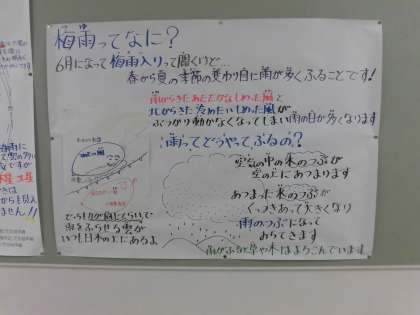 梅雨ってなに?
6月になって梅雨入りって聞くけど…
春から夏の季節の変わり目に雨が多くふることです!
南からきたあたたかなしめった風と
北からきた冷めたいしめった風が
ぶつかり動かなくなってしまい雨の日が多くなります
雨ってどうやってふるの?
空気の中の水のつぶが
空の上にあつまります
あつまった水のつぶが
くっつきあって大きくなり
雨のつぶになって
おちてきます
どっちも力が同じくらいで
雨をふらせる雲が
いつも日本の上にあるよ
雨がふると草や木はよろこんでいます